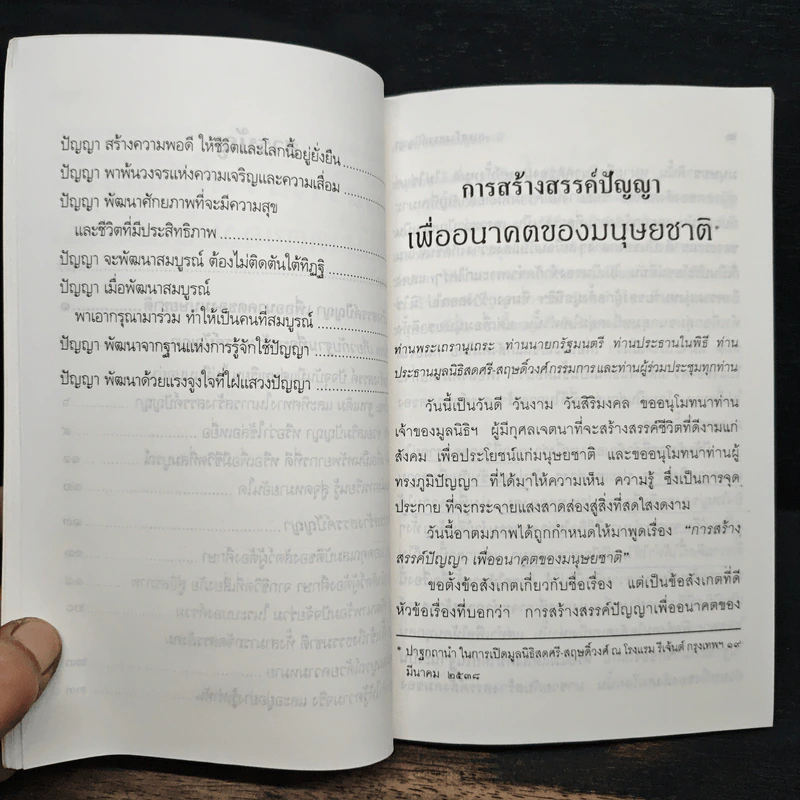 ปัญญา สร้างความพอดี ให้ชีวิตและโลกนี้อยู่ยั่งยืน
ปัญญา พาพ้นวงจรแห่งความเจริญและความเสื่อม
ปัญญา พัฒนาศักยภาพที่จะมีความสุข
และชีวิตที่มีประสิทธิภาพ
ปัญญา จะพัฒนาสมบูรณ์ ต้องไม่ติดตันใต้ทิฏฐิ
ปัญญา เมื่อพัฒนาสมบูรณ์
พาเอากรุณามาร่วม ทำให้เป็นคนที่สมบูรณ์
ปัญญา พัฒนาจากฐานแห่งการรู้จักใช้ปัญญา
ปัญญา พัฒนาด้วยแรงจูงใจที่ใฝ่แสวงปัญญา
การสร้างสรรค์ปัญญา
เพื่ออนาคตของมนุษยชาติ*
ท่านพระเถรานุเถระ ท่านนายกรัฐมนตรี ท่านประธานในพิธี ท่าน
ประธานมูลนิธิสดศรี-สฤษดิ์วงศ์กรรมการ และท่านผู้ร่วมประชุมทุกท่าน
วันนี้เป็นวันดี วันงาม วันสิริมงคล ขออนุโมทนาท่าน
เจ้าของมูลนิธิฯ ผู้มีกุศลเจตนาที่จะสร้างสรรค์ชีวิตที่ดีงามแก่
สังคม เพื่อประโยชน์แก่มนุษยชาติ และขออนุโมทนาท่านผู้
ทรงภูมิปัญญา ที่ได้มาให้ความเห็น ความรู้ ซึ่งเป็นการจุด
ประกาย ที่จะกระจายแสงสาดส่องสู่สิ่งที่สดใสงดงาม
วันนี้อาตมภาพได้ถูกกำหนดให้มาพูดเรื่อง “การสร้าง
สรรค์ปัญญา เพื่ออนาคตของมนุษยชาติ”
ขอตั้งข้อสังเกตเกี่ยวกับชื่อเรื่อง แต่เป็นข้อสังเกตที่ดี
หัวข้อเรื่องที่บอกว่า การสร้างสรรค์ปัญญาเพื่ออนาคตของ
* ปาฐกถานำ ในการเปิดมูลนิธิสดศรี-สฤษดิ์วงศ์ ณ โรงแรม รีเจ้นต์ กรุงเทพฯ ๑๙
มีนาคม ๒๕๓๘